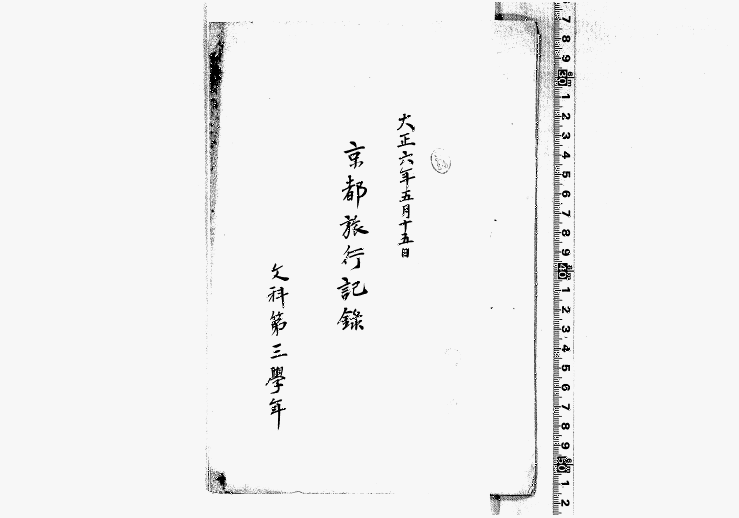 大正六年五月十五日
京都旅行記錄
文科第三學年
7 8 9 30 1 2 3 4 5 6 7 8 9 40 1 2 3 4 5 6 7 8 9 50 1 2